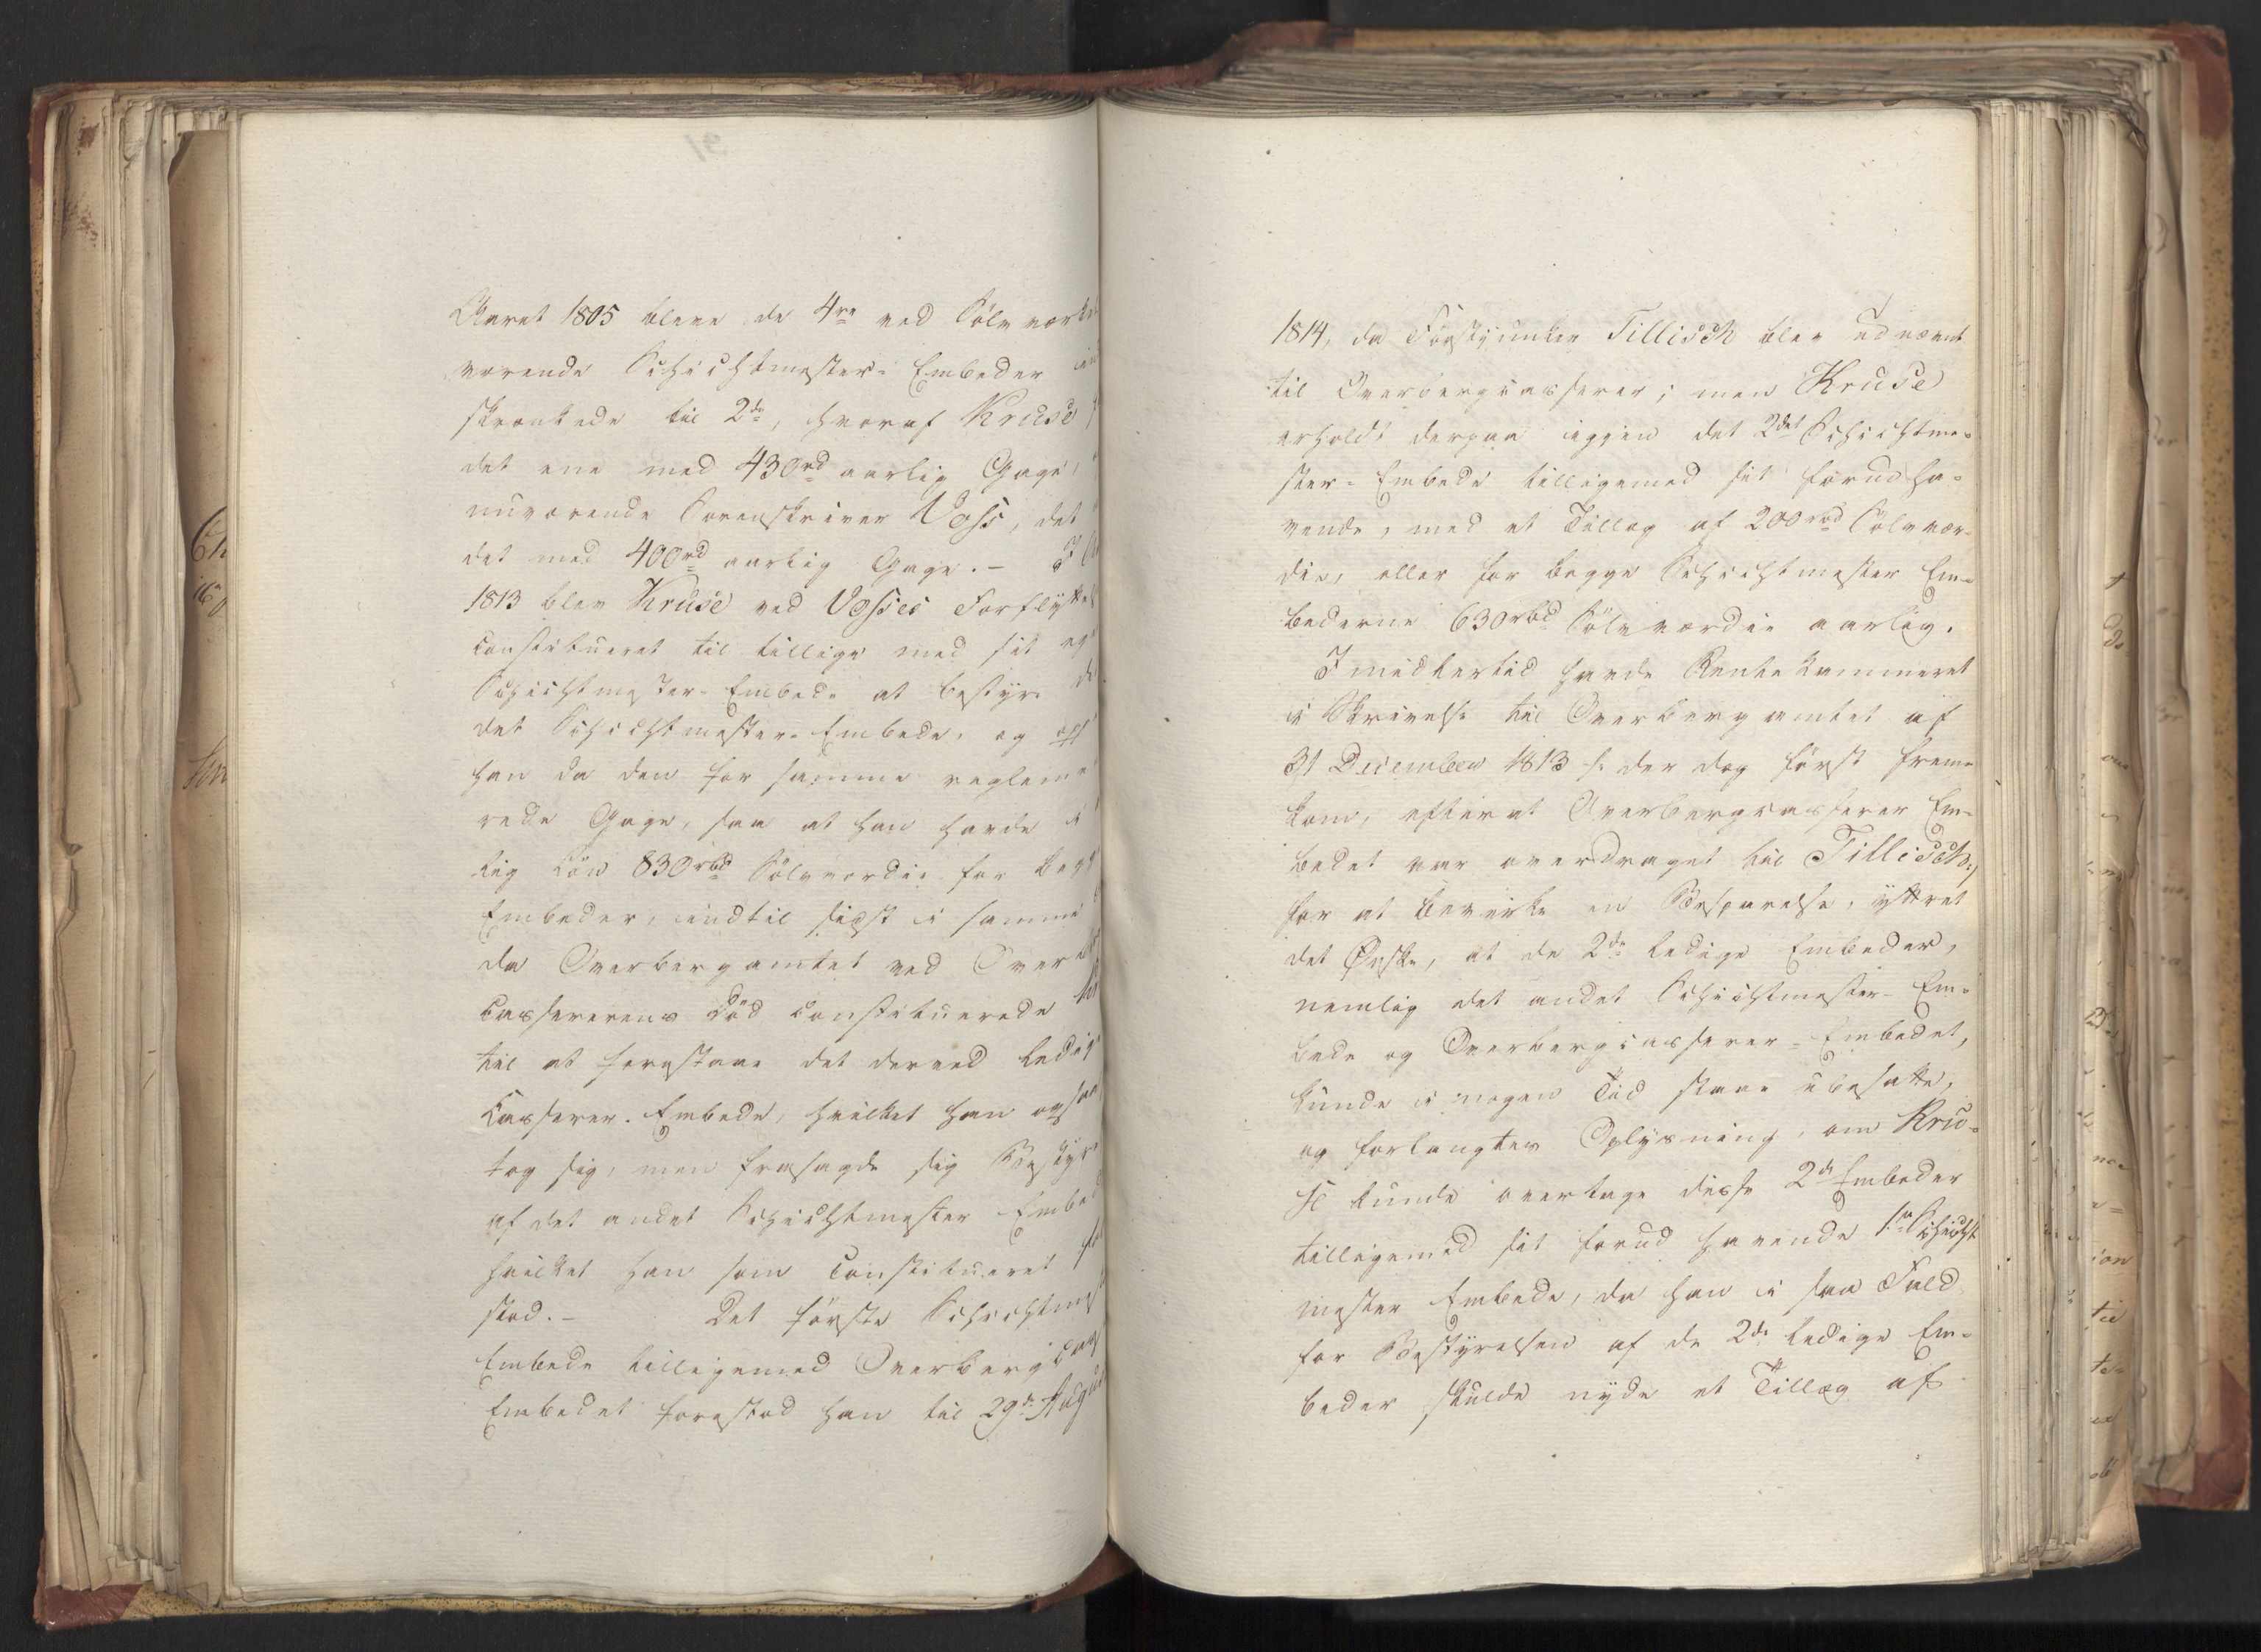 Aaret 1805 bleve de 4re ved Sölvværket
værende Schichtmester-Embeder ind
skrænkede til 2de, hvoraf Kruse f
det ene med 430rd aarlig Gage,
nuværende Sorenskriver Voss, det
det med 400rd aarlig Gage. - I A
1813 blev Kruse ved Vosses Forflyttel
constitueret til tillige med sit eget
Schichtmester-Embede at bestyre
det Schichtmester-Embede, og
han da den for samme reglemen
rede Gage, saa at han havde i
lig Lön 830rbd Sölvværdie for begge
Embeder, indtil sidst i samme
da Overbergamtet ved Overberg
Cassererens Död constituerede
til at forestaae det derved ledige
Casserer-Embede, hvilket han ogsaa
tog sig, men frasagde sig Bestyr
af det andet Schichtmester Embede
hvilket han som Constitueret for
stod. - Det förste Schichtmest
Embede tilligemed Overbergcass
Embedet forestod han til 29de August
1814, da Forstjunker Tillisch blev udnævnt
til Overbergcasserer; men Kruse
erholdt derpaa igjen det 2det Schichtme-
ster-Embede tilligemed sit forud ha-
vende, med et Tillæg af 200rbd Sölvvær-
die, eller for begge Schichtmester Em-
bederne 630rbd Sölvværdie aarlig.
Imidlertid havde Rentekammeret
i Skrivelse til Overbergamtet af
31 December 1813 /: der dog först frem-
kom, efter at Overbergcasserer Em-
bedet var overdraget til Tillisch :/
for at bevirke en Besparelse, yttret
det Ønske, at de 2de ledige Embeder,
nemlig det andet Schichtmester-Em-
bede og Overbergcasserer-Embedet,
kunde i nogen Tid staae ubesatte,
og forlangtes Oplysning, om Kru-
se kunde overtage disse 2de Embeder
tilligemed sit forud havende 1ste Schicht
mester Embede, da han i saa Fald
for Bestyrelsen af de 2de ledige Em-
beder skulde nyde et Tillæg af